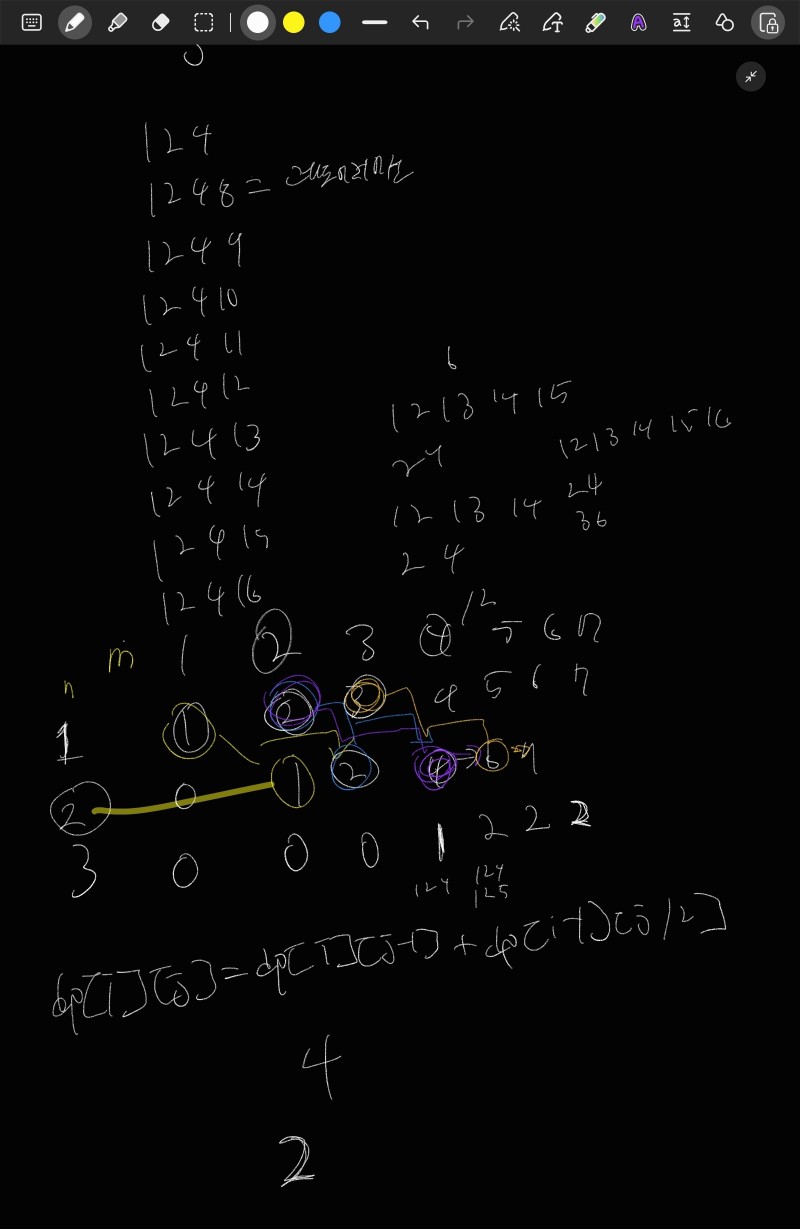 1 2 4
1 2 4 8 =
1 2 4 9
1 2 4 10
1 2 4 11
1 2 4 12
1 2 4 13
1 2 4 14
1 2 4 15
1 2 4 16
6
12 13 14 15
24
12 13 14 15 16
24
36
12 13 14
24
m 1 2 3 4 5 6 7
/2
n
1 1 2 3 4 5 6 7
2 0 1 2 4 → 6 → 7
3 0 0 0 1 2 2 2
124 124
125
dp[i][j] = dp[i][j-1] + dp[i-1][j/2]
4
2